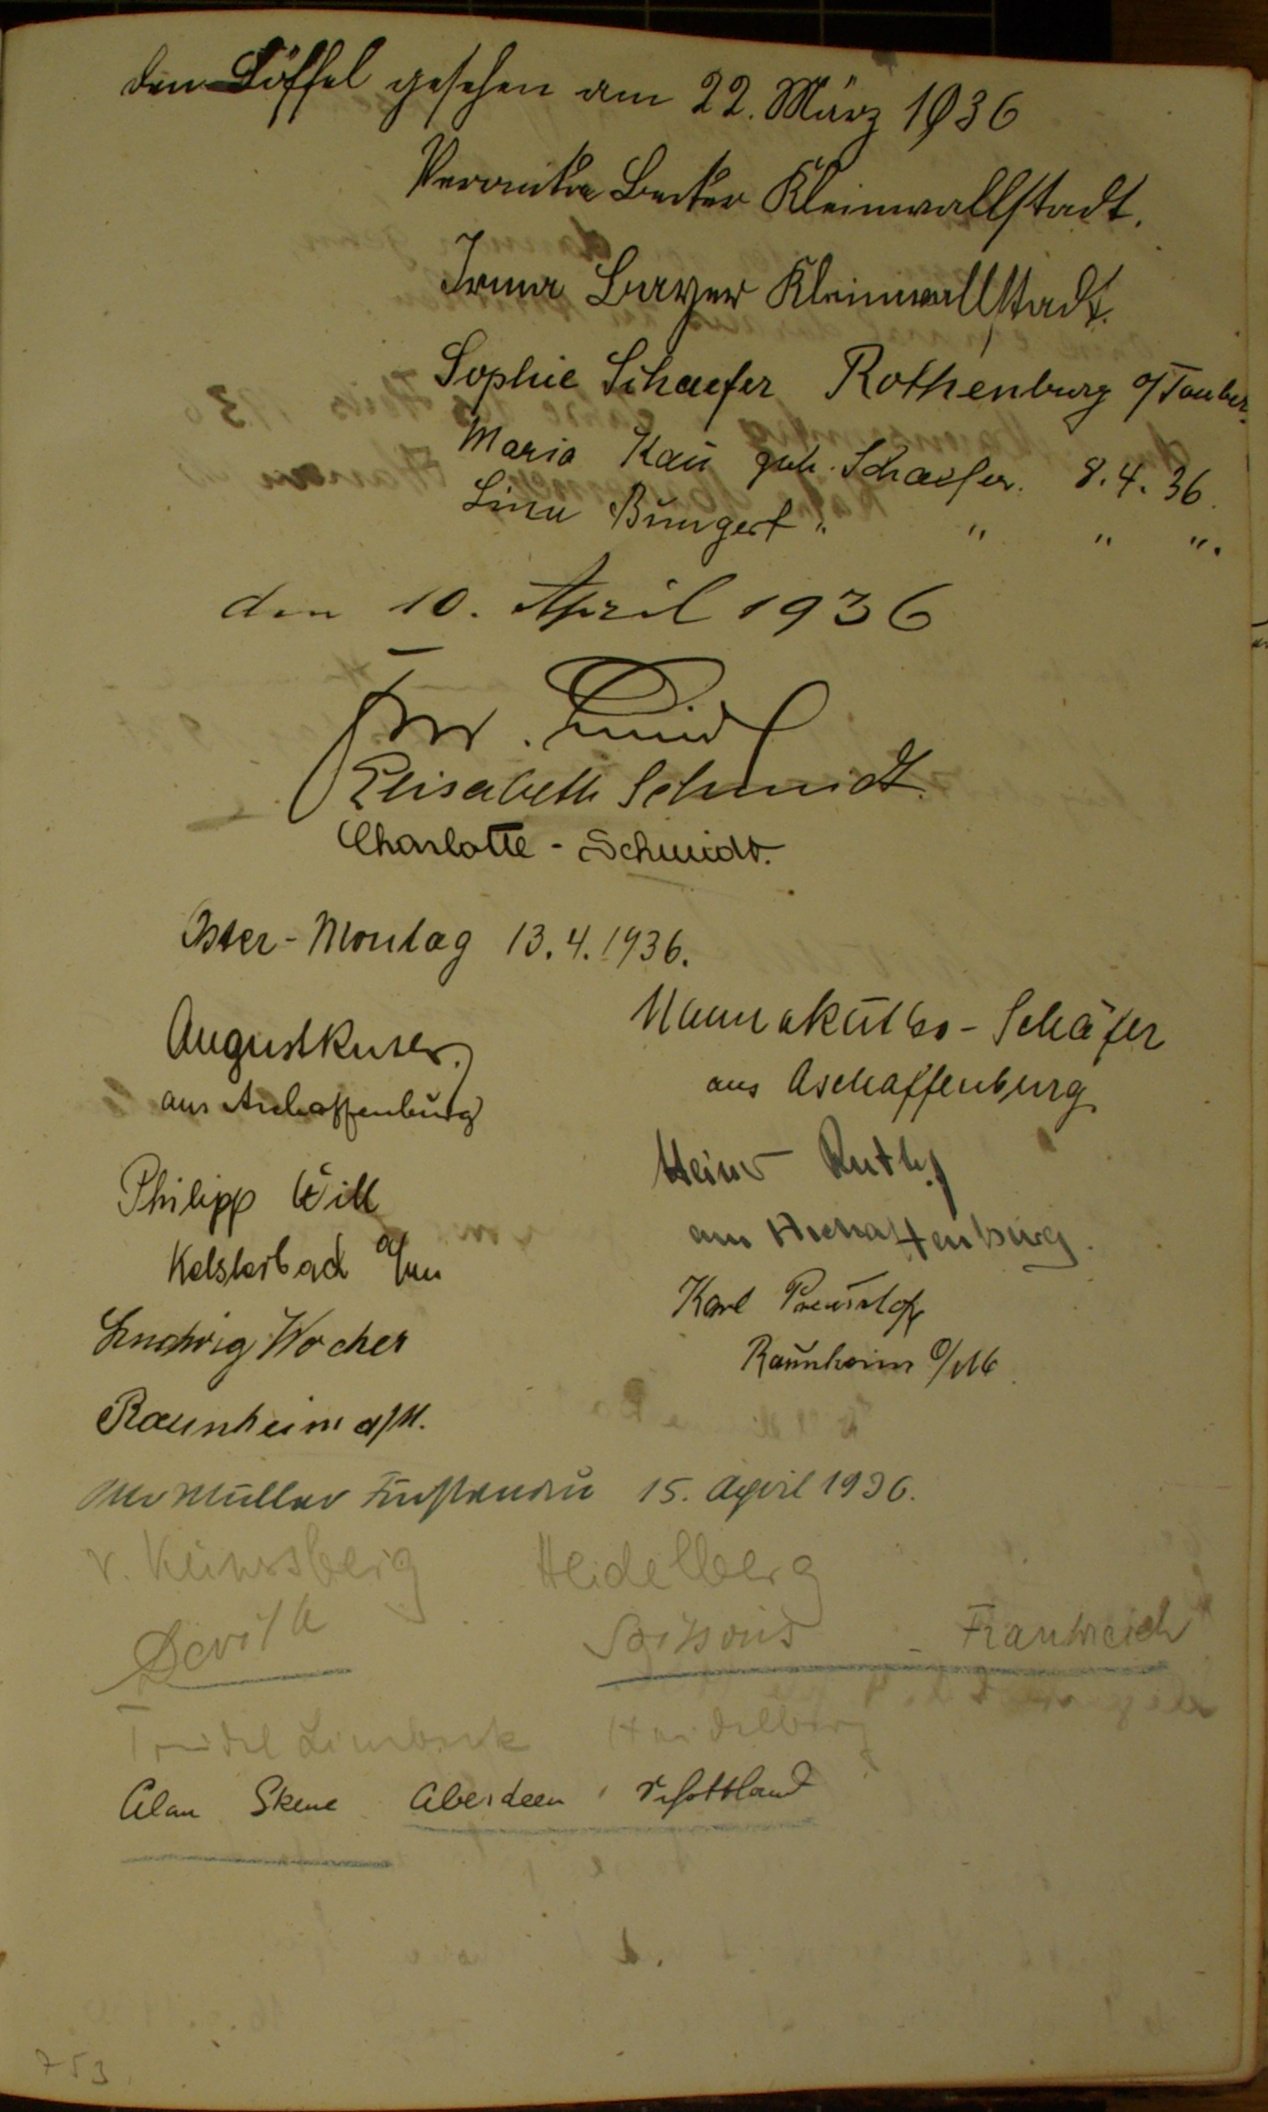 den Löffel gesehen am 22. März 1936
Veronika Becker Kleinwallstadt.
Irma Bayer Kleinwallstadt.
Sophie Schaefer Rothenburg o/Tauber.
Maria Kaü geb. Schaefer. 8.4.36.
Lina Büngert " " " ".
den 10. April 1936
Elisabeth Schmidt.
Charlotte - Schmidt.
Oster-Montag 13.4.1936.
August
aus Aschaffenburg
Schäfer
aus Aschaffenburg
Philipp Will
Kelsterbach a/m
Heinr
aus Aschaffenburg.
Ludwig Wocher
Raunheim a/M.
Karl
Raunheim a/M.
Müller Fürstenau 15. April 1936.
v. Künssberg Heidelberg
Soissons - Frankreich
Heidelberg
Alan Skene Aberdeen, Schottland
753